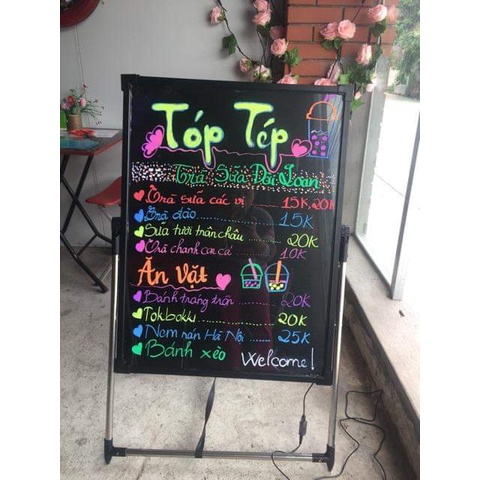 Tóp Tép
Trà Sữa Đài Loan
Trà sữa các vị 15K, 20K
Trà đào ........ 15K
Sữa tươi trân châu ..... 20K
Trà chanh 10K
Ăn Vặt
Bánh tráng trộn ...... 20K
Tokbokki ........ 20K
Nem rán Hà Nội ...... 25K
Bánh xèo Welcome!